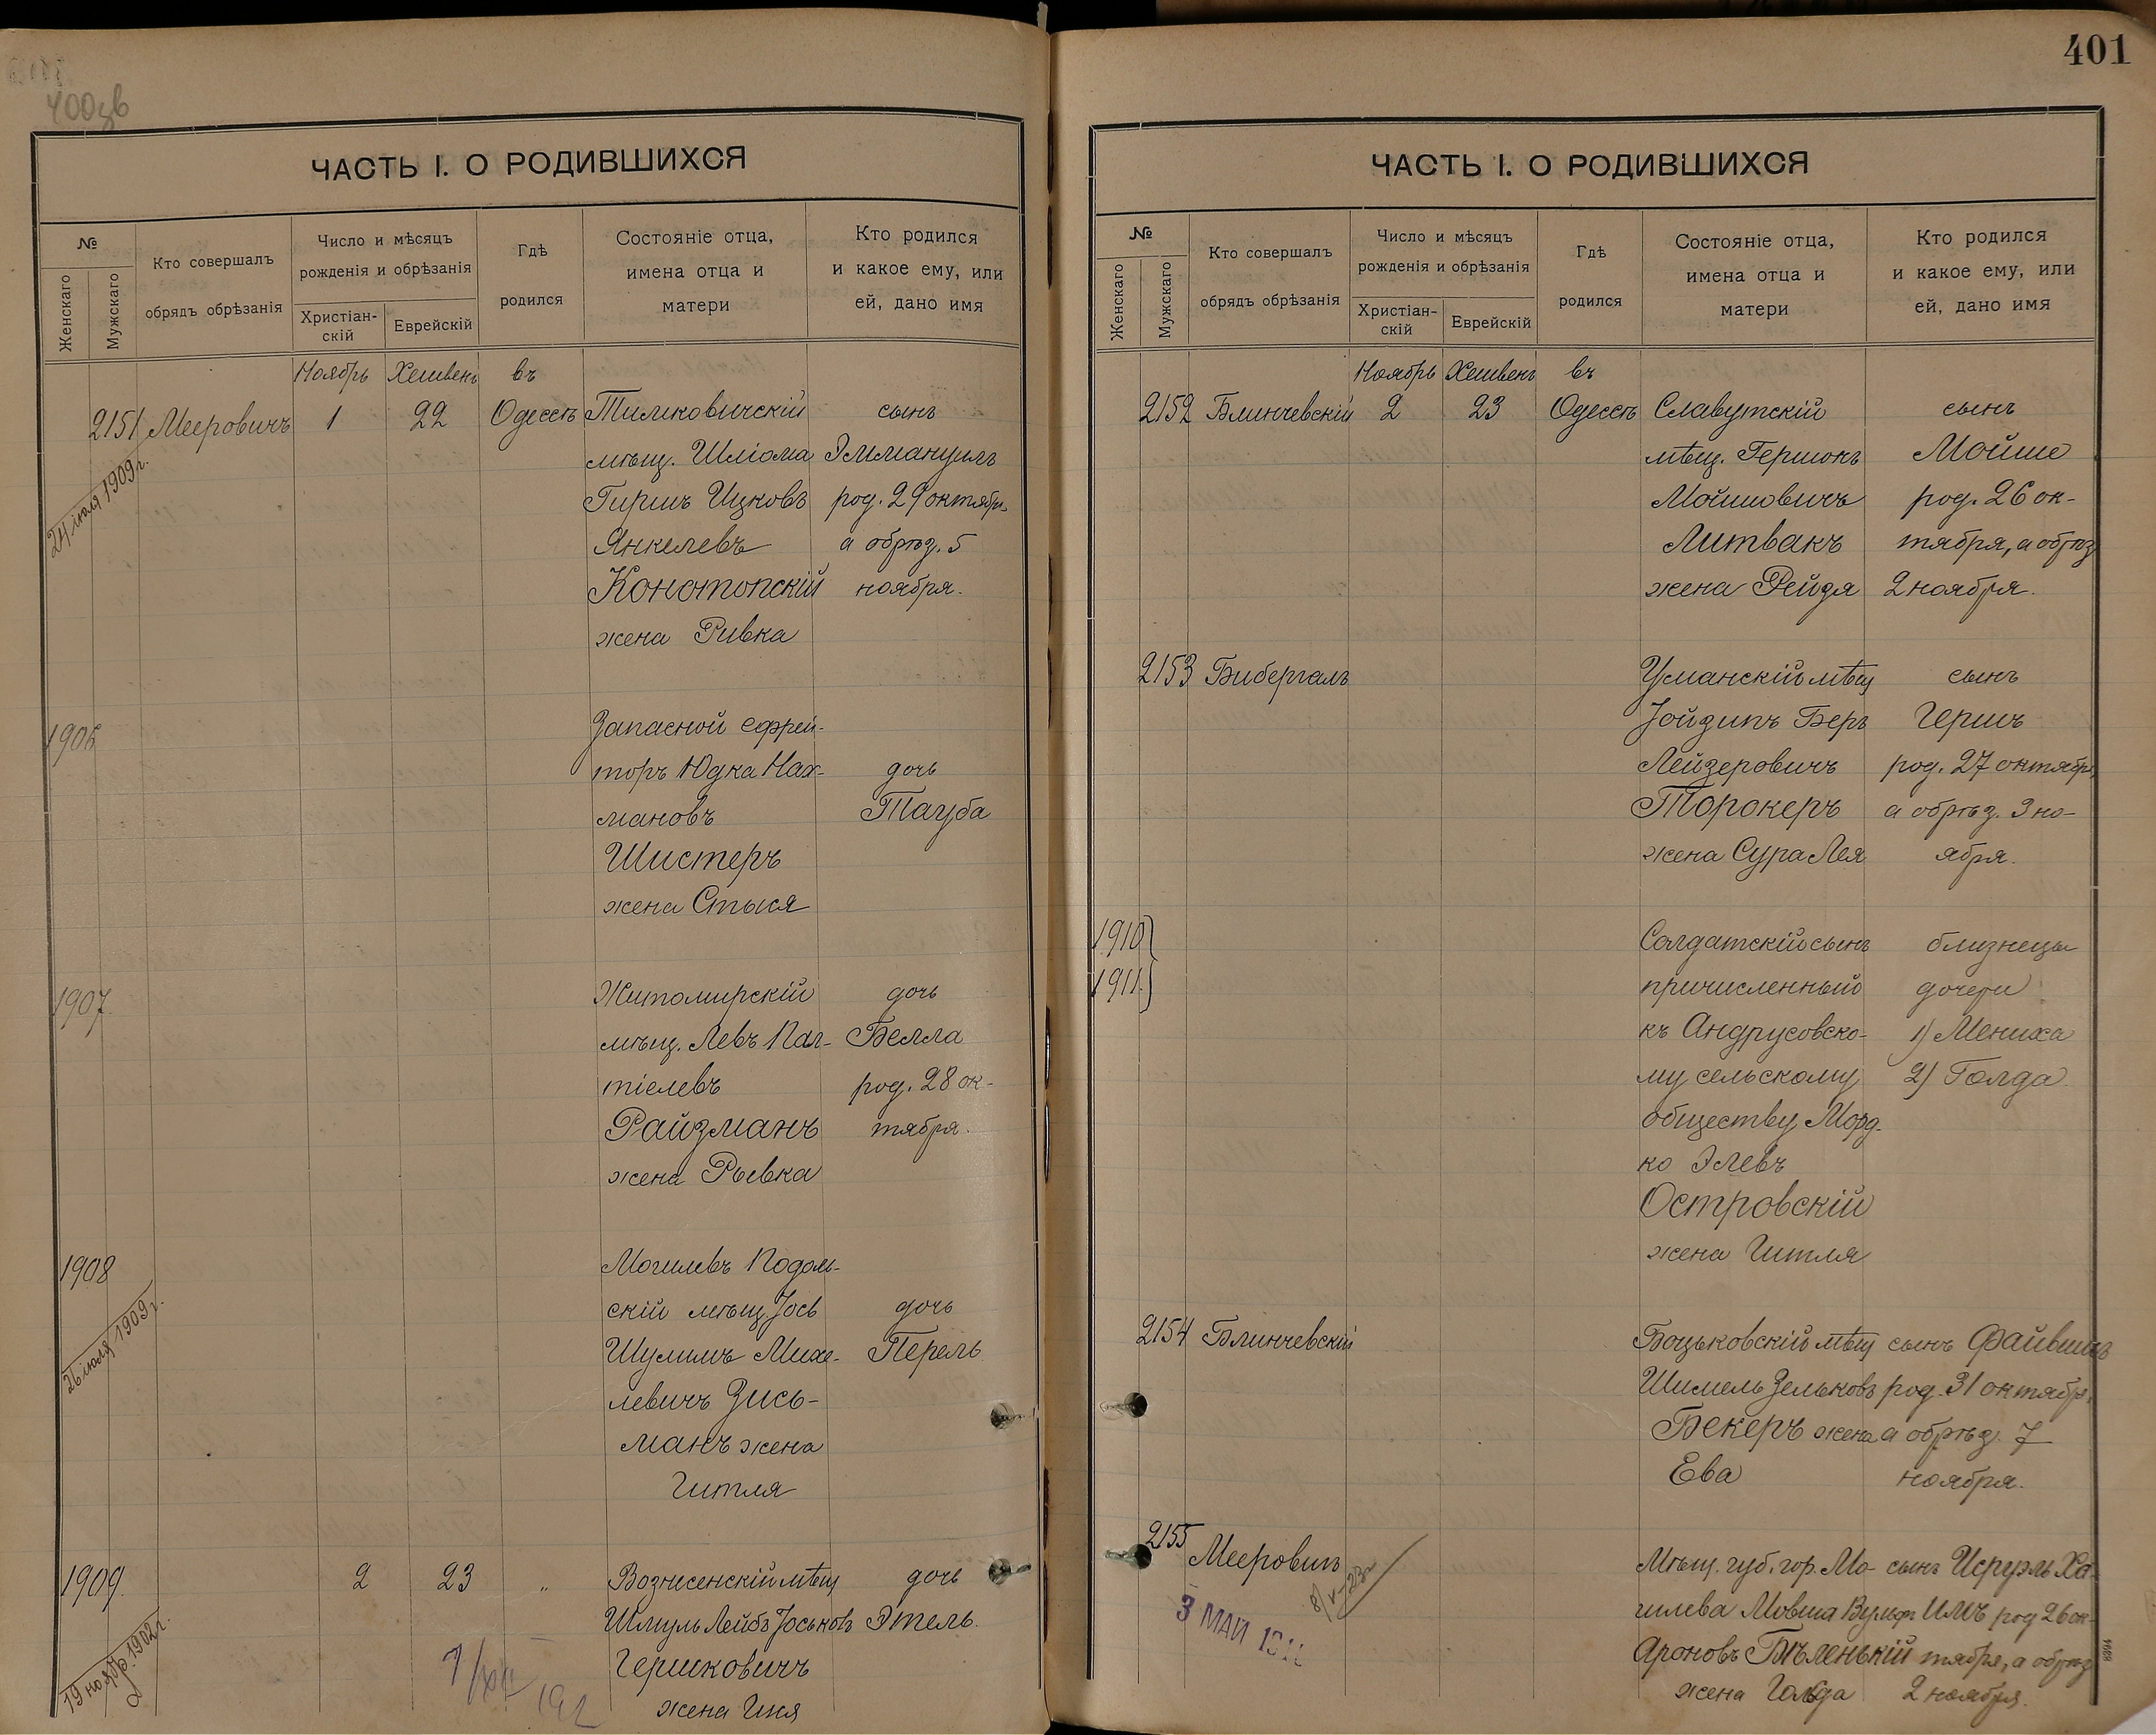 400зв
ЧАСТЬ I. О РОДИВШИХСЯ
№
Женскаго
Мужскаго
Кто совершалъ
обрядъ обрѣзанія
Число и мѣсяцъ
рожденія и обрѣзанія
Христіан-
скій
Еврейскій
Гдѣ
родился
Состояніе отца,
имена отца и
матери
Кто родился
и какое ему, или
ей, дано имя
Ноябрь Хешвенъ въ
2151 Мееровичъ 1 22 Одессѣ Тимковичскій сынъ
мѣщ. Шліома Эммануилъ
Гиршъ Ицковъ род. 29 октября,
Янкелевъ а обрѣз. 5
Конотопскій ноября.
жена Ривка
24 іюля 1909 г.
1906 Запасной ефрей-
торъ Юдка Нах- дочь
мановъ Тауба
Шистеръ
жена Стыся
1907. Житомирскій дочь
мѣщ. Левъ Пал- Белла
тіелевъ род. 28 ок-
Райзманъ тября.
жена Рывка
1908 Могилевъ Подоль-
скій мѣщ. Іось дочь
Шулимъ Михе- Перель
левичъ Зись-
манъ жена
Гитля
26 іюля 1909 г.
1909. 2 23 „ Вознесенскій мѣщ дочь
Шмуль Лейбъ Іоськовъ Этель.
Гершковичъ
жена Гися
19 ноябр. 1902 г.
401
ЧАСТЬ I. О РОДИВШИХСЯ
№
Женскаго
Мужскаго
Кто совершалъ
обрядъ обрѣзанія
Число и мѣсяцъ
рожденія и обрѣзанія
Христіан-
скій
Еврейскій
Гдѣ
родился
Состояніе отца,
имена отца и
матери
Кто родился
и какое ему, или
ей, дано имя
Ноябрь Хешвенъ въ
2152 Блинчевскій 2 23 Одессѣ Славутскій сынъ
мѣщ. Гершонъ Мойше
Мойшовичъ род. 26 ок-
Литвакъ тября, а обрѣз
жена Рейдя 2 ноября.
2153 Бибергалъ Уманскій мѣщ сынъ
Іойзипъ Беръ Гершъ
Лейзеровичъ род. 27 октября,
Торокеръ а обрѣз. 3 но-
жена Сура Лея ября.
1910 Солдатскій сынъ близнецы
1911. причисленный дочери
къ Андрусовско- 1) Мениха
му сельскому 2) Голда
обществу Морд-
ко Элевъ
Островскій
жена Гитля
2154 Блинчевскій Боцьковскій мѣщ сынъ Файвишъ
Шимель Зельковъ род. 31 октября,
Бекеръ жена а обрѣз. 7
Ева ноября.
2155 Мееровичъ Мѣщ. губ. гор. Мо- сынъ Исруэль Ха-
гилева Мовша Вульфъ имъ род 26 ок-
Ароновъ Бѣленькій тября, а обрѣз
жена Голда 2 ноября.
3 МАЙ